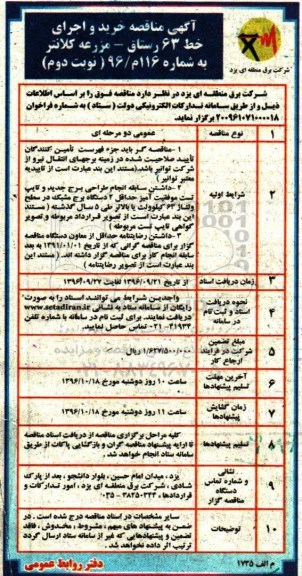 آگهی مناقصه خرید و اجرای
خط ۶۳ رستاق - مزرعه کلانتر
به شماره ۱۱۶م/۹۶ (نوبت دوم)
شرکت برق منطقه ای یزد
شرکت برق منطقه ای یزد در نظر دارد مناقصه فوق را بر اساس اطلاعات
ذیل و از طریق سامانه تدارکات الکترونیکی دولت (ستاد) به شماره فراخوان
۲۰۰۹۶۱۰۷۱۰۰۰۰۱۸ برگزار نماید.
۱ نوع مناقصه عمومی دو مرحله ای
۲ شرایط اولیه
۱- مناقصه گر باید جزء فهرست تأمین کنندگان
تأیید صلاحیت شده در زمینه برجهای انتقال نیرو از
شرکت توانیر باشد. (مستند این بند عبارت است از تاییدیه
معتبر توانیر)
۲- داشتن سابقه انجام طراحی برج جدید و تایپ
تست موفقیت آمیز حداقل ۲ دستگاه برج مشبک در سطح
ولتاژ ۶۳ کیلوولت یا بالاتر طی ۵ سال گذشته (مستند
این بند عبارت است از تصویر قرارداد مربوطه و تصویر
گواهی تایپ تست مربوطه)
۳- داشتن رضایتنامه حداقل از معاون دستگاه مناقصه
گزار برای مناقصه گرانی که از تاریخ ۱۳۹۱/۰۱/۰۱ به بعد
سابقه انجام کار برای مناقصه گزار داشته اند. (مستند این
بند عبارت است از تصویر رضایتنامه)
۳ زمان دریافت اسناد از تاریخ ۱۳۹۶/۰۹/۲۱ لغایت ۱۳۹۶/۰۹/۲۷
۴ نحوه دریافت
اسناد و ثبت نام
در سامانه
واجدین شرایط می توانند اسناد را به صورت
رایگان از سامانه ستاد به نشانی www.setadiran.ir
دریافت نمایند. برای ثبت نام در سامانه با شماره تلفن
۴۱۹۳۴-۰۲۱ تماس حاصل نمایید.
۵ مبلغ تضمین
شرکت در فرآیند
ارجاع کار
ریال
۶ آخرین مهلت
تسلیم پیشنهادها
ساعت ۱۰ روز دوشنبه مورخ ۱۳۹۶/۱۰/۱۸
۷ زمان گشایش
پیشنهادها
ساعت ۱۱ روز دوشنبه مورخ ۱۳۹۶/۱۰/۱۸
۸ تسلیم پیشنهادها
کلیه مراحل برگزاری مناقصه از دریافت اسناد مناقصه
تا ارایه پیشنهاد مناقصه گران و بازگشایی پاکات از طریق
سامانه ستاد انجام خواهد شد.
۹ نشانی
و شماره تماس
دستگاه
مناقصه گزار
یزد، میدان امام حسین، بلوار دانشجو، بعد از پارک
شادی، شرکت برق منطقه ای یزد، امور تدارکات و
قراردادها،
۱۰ توضیحات
سایر مشخصات در اسناد مناقصه درج شده است. در
ضمن به پیشنهاد های مبهم، مشروط، مخدوش، فاقد
تضمین و پیشنهادهایی که غیر از سامانه ستاد ارسال گردد
ترتیب اثر داده نخواهد شد.
م الف ۱۷۳۵
دفتر روابط عمومی